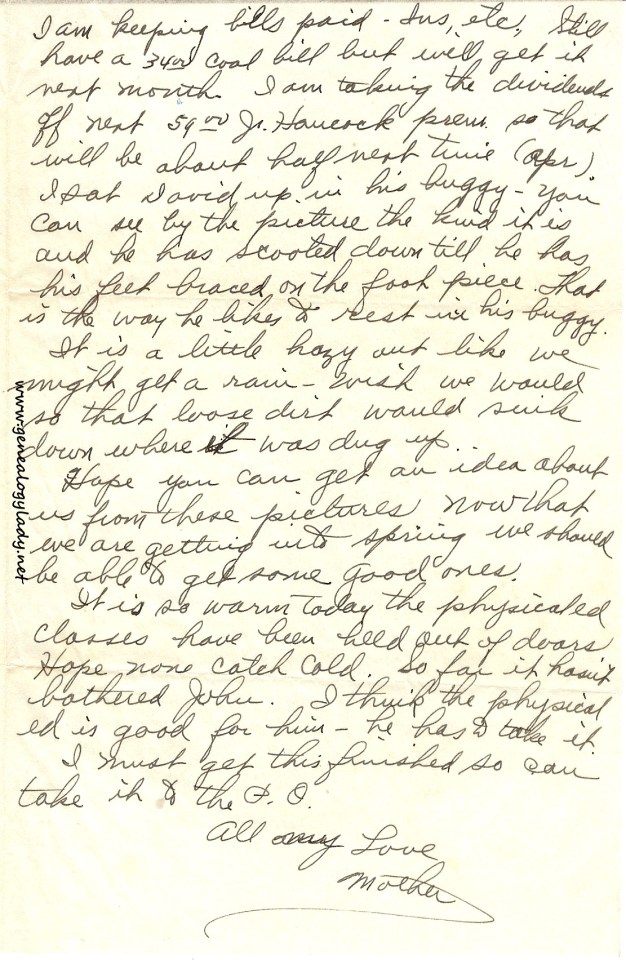 I am keeping bills paid - Ins, etc., Still
have a 34 00 coal bill but will get it
next month. I am taking the dividends
off next 59 00 Jn. Hancock prem. so that
will be about half next time (Apr)
I sat David up in his buggy - you
can see by the picture the kind it is
and he has scooted down till he has
his feet braced on the foot piece. That
is the way he likes to rest in his buggy.
It is a little hazy out like we
might get a rain - wish we would
so that loose dirt would sink
down where it was dug up.
Hope you can get an idea about
us from these pictures now that
we are getting into spring we should
be able to get some good ones.
It is so warm today the physical ed
classes have been held out of doors
Hope none catch cold. So far it hasn't
bothered John. I think the physical
ed is good for him - he has to take it.
I must get this finished so can
take it to the P.O.
All my Love
Mother
www.genealogylady.net